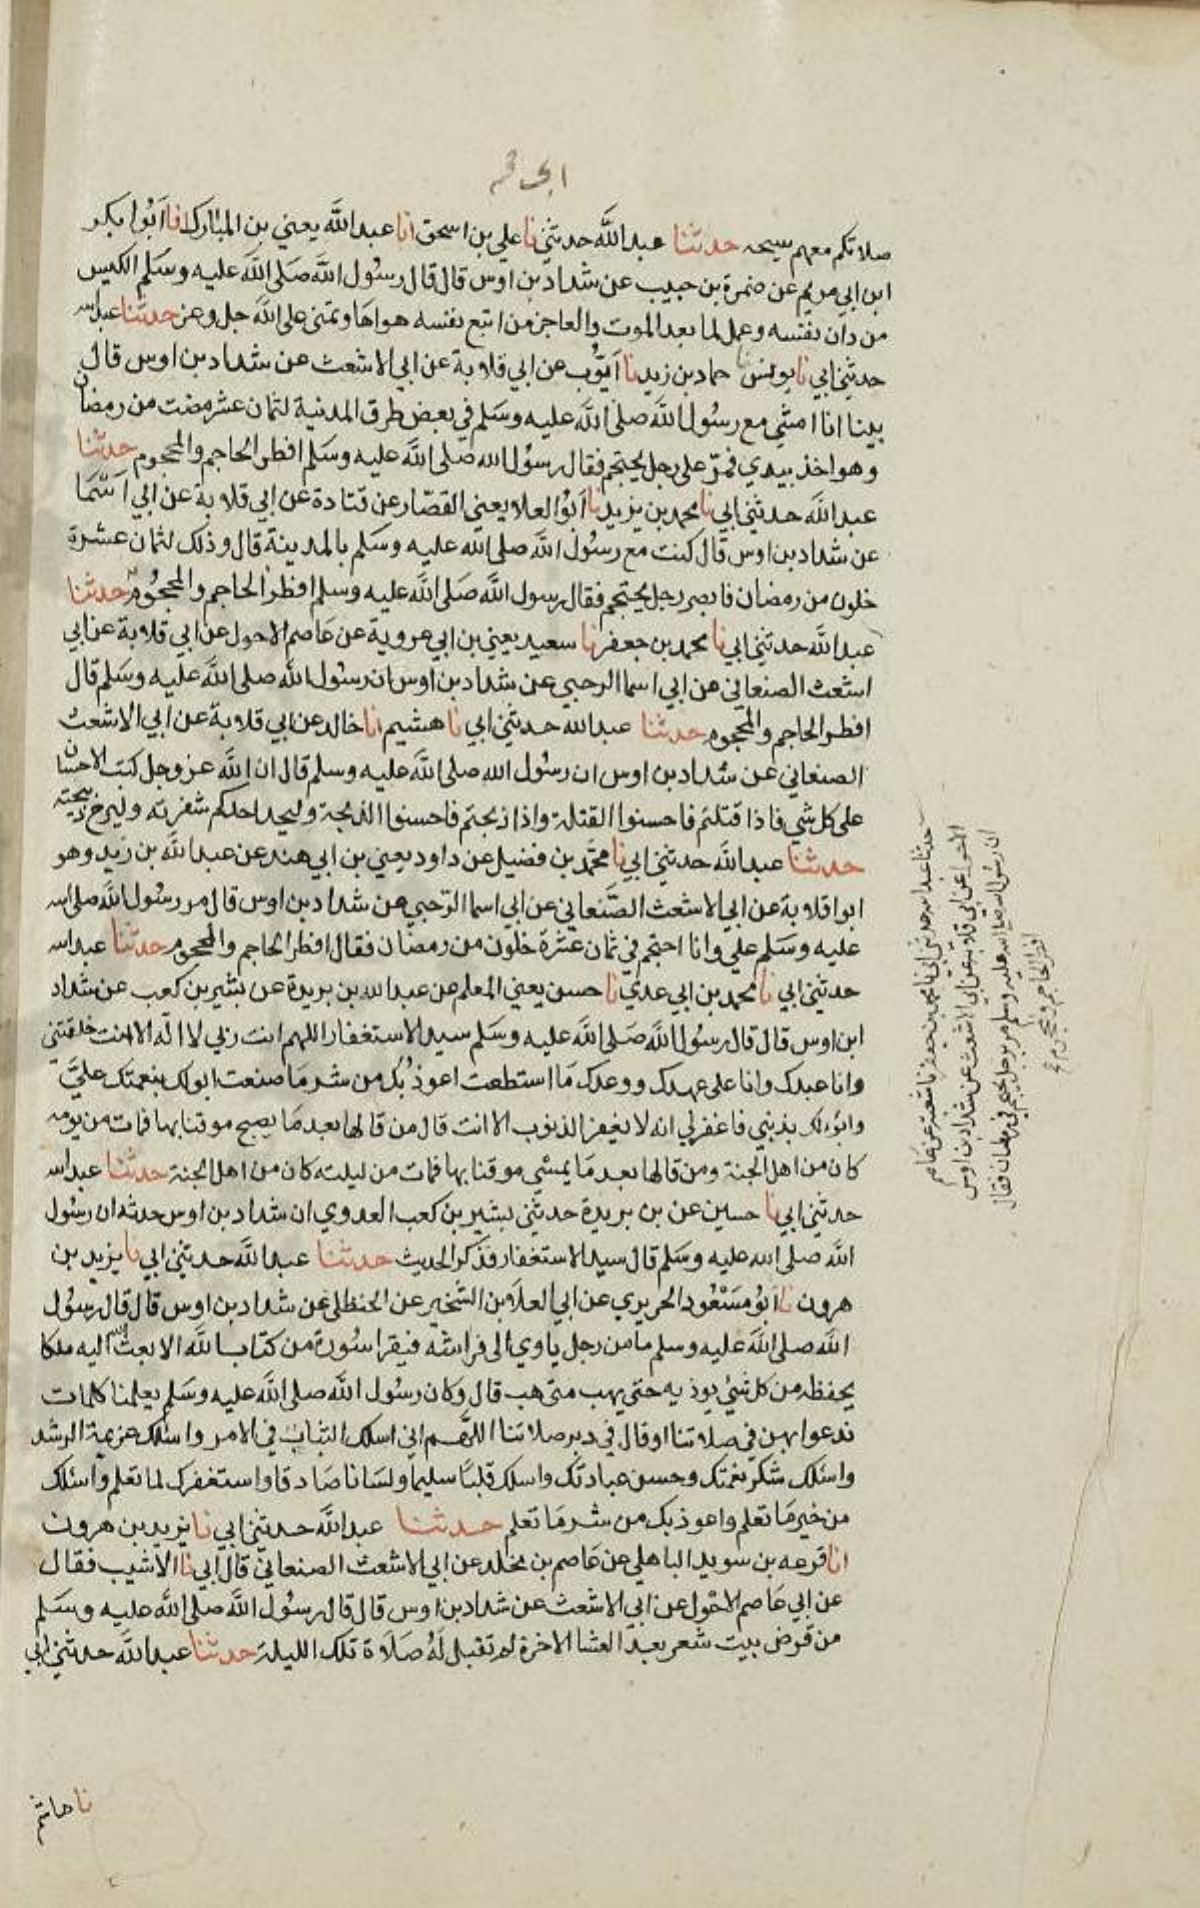 صلاتكم معهم سبحه حدثنا عبد الله حدثني نا علي بن اسحق انا عبد الله يعني بن المبارك انا ابوا بكر
ابن ابي مريم عن ضمرة بن حبيب عن شداد بن اوس قال قال رسول الله صلى الله عليه وسلم الكيس
من دان نفسه وعمل لما بعد الموت والعاجز من اتبع نفسه هواها وتمنى على الله جل وعز حدثنا عبد الله
حدثني ابي نا يونس نا حماد بن زيد نا ايوب عن ابي قلابة عن ابي الاشعث عن شداد بن اوس قال
بينا انا امشي مع رسول الله صلى الله عليه وسلم في بعض طرق المدينة لثمان عشر مضت من رمضان
وهو اخذ بيدي فمر على رجل يحتجم فقال رسول الله صلى الله عليه وسلم افطر الحاجم والمحجوم حدثنا
عبد الله حدثني ابي نا محمد بن يزيد نا ابو العلا يعني القصار عن قتادة عن ابي قلابة عن ابي اسما
عن شداد بن اوس قال كنت مع رسول الله صلى الله عليه وسلم بالمدينة قال وذلك لثمان عشرة
خلون من رمضان فابصر رجل يحتجم فقال رسول الله صلى الله عليه وسلم افطر الحاجم والمحجوم حدثنا
عبد الله حدثني ابي نا محمد بن جعفر نا سعيد يعني بن ابي عروبة عن عاصم الاحول عن ابي قلابة عن ابي
اشعث الصنعاني عن ابي اسما الرحبي عن شداد بن اوس ان رسول الله صلى الله عليه وسلم قال
افطر الحاجم والمحجوم حدثنا عبد الله حدثني ابي نا هشيم انا خالد عن ابي قلابة عن ابي الاشعث
الصنعاني عن شداد بن اوس ان رسول الله صلى الله عليه وسلم قال ان الله عز وجل كتب الاحسان
على كل شي فاذا قتلتم فاحسنوا القتلة واذا ذبحتم فاحسنوا الذبحة وليحد احدكم شفرته وليرح ذبيحته
حدثنا عبد الله حدثني ابي نا محمد بن فضيل عن داود يعني بن ابي هند عن عبد الله بن زيد وهو
ابوا قلابة عن ابي الاشعث الصنعاني عن ابي اسما الرحبي عن شداد بن اوس قال مر رسول الله صلى الله
عليه وسلم علي وانا احتجم في ثمان عشرة خلون من رمضان فقال افطر الحاجم والمحجوم حدثنا عبد الله
حدثني ابي نا محمد بن ابي عدي نا حسين يعني المعلم عن عبد الله بن بريدة عن بشير بن كعب عن شداد
ابن اوس قال قال رسول الله صلى الله عليه وسلم سيد الاستغفار اللهم انت ربي لا اله الا انت خلقتني
وانا عبدك وانا على عهدك ووعدك ما استطعت اعوذ بك من شر ما صنعت ابو لك بنعمتك علي
وابوء لك بذنبي فاغفر لي انه لا يغفر الذنوب الا انت قال من قالها بعد ما يصبح موقنا بها فمات من يومه
كان من اهل الجنة ومن قالها بعد ما يمسي موقنا بها فمات من ليلته كان من اهل الجنة حدثنا عبد الله
حدثني ابي نا حسين عن بن بريدة حدثني بشير بن كعب العدوي ان شداد بن اوس حدثه ان رسول
الله صلى الله عليه وسلم قال سيد الاستغفار فذكر الحديث حدثنا عبد الله حدثني ابي نا يزيد بن
هرون نا ابو مسعود الجريري عن ابي العلا بن الشخير عن الحنظلي عن شداد بن اوس قال قال رسول
الله صلى الله عليه وسلم ما من رجل ياوي الى فراشه فيقرا سورة من كتاب الله الا بعث الله اليه ملكا
يحفظه من كل شئ يوذيه حتى يهب متى هب قال وكان رسول الله صلى الله عليه وسلم يعلمنا كلمات
ندعوا بهن في صلاتنا او قال في دبر صلاتنا اللهم اني اسلك الثبات في الامر واسئلك عزيمة الرشد
واسئلك شكر نعمتك وحسن عبادتك واسلك قلبا سليما ولسانا صادقا واستغفرك لما تعلم واسئلك
من خير ما تعلم واعوذ بك من شر ما تعلم حدثنا عبد الله حدثني ابي نا يزيد بن هرون
انا قزعه بن سويد الباهلي عن عاصم بن مخلد عن ابي الاشعث الصنعاني قال ابي نا الاشيب فقال
عن ابي عاصم الاحول عن ابي الاشعث عن شداد بن اوس قال قال رسول الله صلى الله عليه وسلم
من قرض بيت شعر بعد العشا الاخرة لم تقبل له صلاة تلك الليلة حدثنا عبد الله حدثني ابي
حدثنا عبد الله حدثني ابي نا محمد بن جعفر نا شعبة عن عاصم
الاحول عن ابي قلابة عن ابي الاشعث عن شداد بن اوس
ان رسول الله صلى الله عليه وسلم مر برجل يحتجم في رمضان فقال
افطر الحاجم والمحجوم
نا هاشم